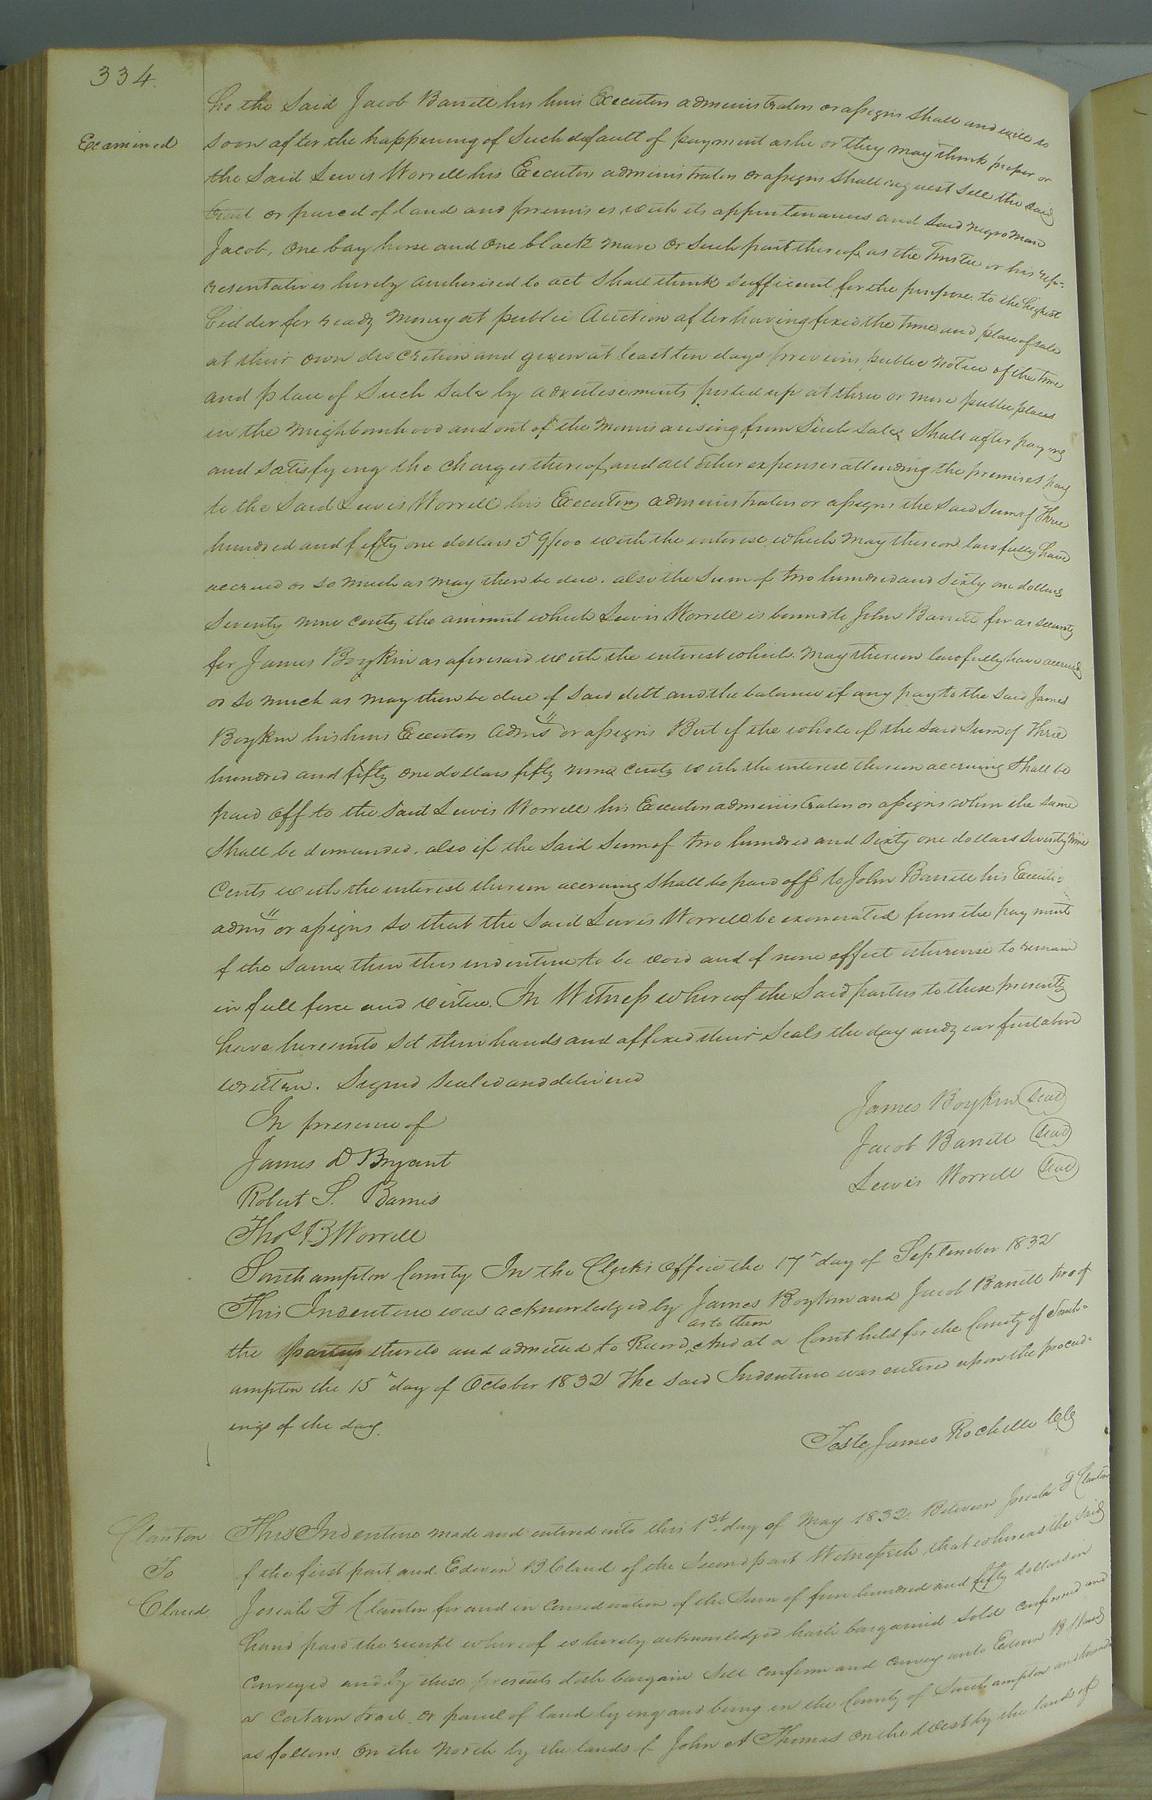 334.
Examined
he the Said Jacob Barrett his heirs Executors administrators or assigns Shall and will so
Soon after the happening of Such default of payment as he or they may think proper or
the Said Lewis Worrell his Executors administrators or assigns Shall request Sell the said
tract or parcel of land and premises with its appurtenances and Said negro man
Jacob, one bay horse and one black mare or Such part thereof as the Trustee or his rep-
resentatives hereby authorised to act Shall think Sufficient for the purpose to the highest
bidder for ready Money at public Auction after having fixed the time and place of sale
at their own discretion and given at least ten days previous public notice of the time
and place of Such Sale by advertisements posted up at three or more public places
in the neighbourhood and out of the monies arising from Such Sale Shall after paying
and Satisfying the charges thereof and all other expenses attending the premises pay
to the Said Lewis Worrell his Executors administrators or assigns the Said Sum of Three
hundred and fifty one dollars 59/100 with the interest which may thereon lawfully have
accrued or so much as may then be due. also the Sum of two hundred and Sixty one dollars
Seventy nine cents the amount which Lewis Worrell is bound to John Barrett for as security
for James Boykin as aforesaid with the interest which may thereon lawfully have accrued
or so much as may then be due of Said debt and the balance if any pay to the Said James
Boykin his heirs Executors Adms or assigns But if the whole of the Said Sum of Three
hundred and fifty one dollars fifty nine cents with the interest thereon accruing Shall be
paid off to the Said Lewis Worrell his Executors administrators or assigns when the same
Shall be demanded. also if the Said Sum of two hundred and Sixty one dollars Seventy nine
Cents with the interest thereon accruing Shall be paid off to John Barrett his Execut-
adms or assigns so that the Said Lewis Worrell be exonerated from the payment
of the Same then this indenture to be void and of none effect otherwise to remain
in full force and virtue. In Witness whereof the Said parties to these presents
have hereunto Set their hands and affixed their Seals the day and year first above
written. Signed Sealed and delivered
In presence of
James Boykin Seal
James D Bryant
Jacob Barrett Seal
Robert S. Barnes
Lewis Worrell Seal
Thos B Worrell
Southampton County In the Clerk's Office the 17" day of September 1832
This Indenture was acknowledged by James Boykin and Jacob Barrett two of
as to them
the parties thereto and admitted to Record, And at a Court held for the County of South-
ampton the 15" day of October 1832 The said Indenture was entered upon the proceed-
ings of the day.
Teste James Rochelle Clk
Clanton
To
Claud
This Indenture made and entered into this 1st day of May 1832. Between Josiah F Clanton
of the first part and Edwin B Claud of the Second part Witnesseth that whereas the Said
Josiah F Clanton for and in consideration of the Sum of four hundred and fifty dollars in
hand paid the receipt whereof is hereby acknowledged hath bargained Sold confirmed and
conveyed and by these presents doth bargain Sell confirm and convey unto Edwin B Claud
a certain tract or parcel of land lying and being in the County of Southampton and bounded
as follows. On the North by the lands of John A Thomas on the West by the lands of